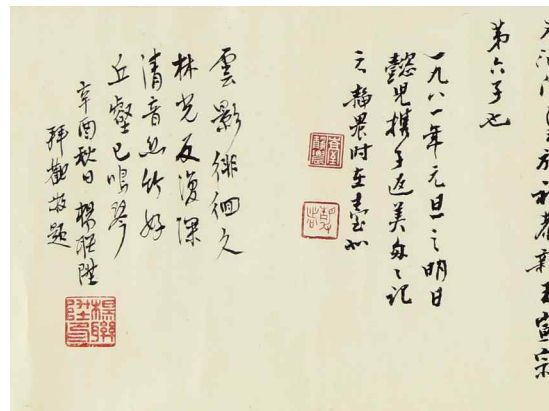 新王宣宗
第六子也
一九八一年元旦之明日
懿兒携子返美匆匆記
之 靜農时在臺北
雲影徘徊久
林光反復深
清音丝竹好
丘壑已鳴琴
辛酉秋日 楊联陞
拜觀敬題
楊聯陞印